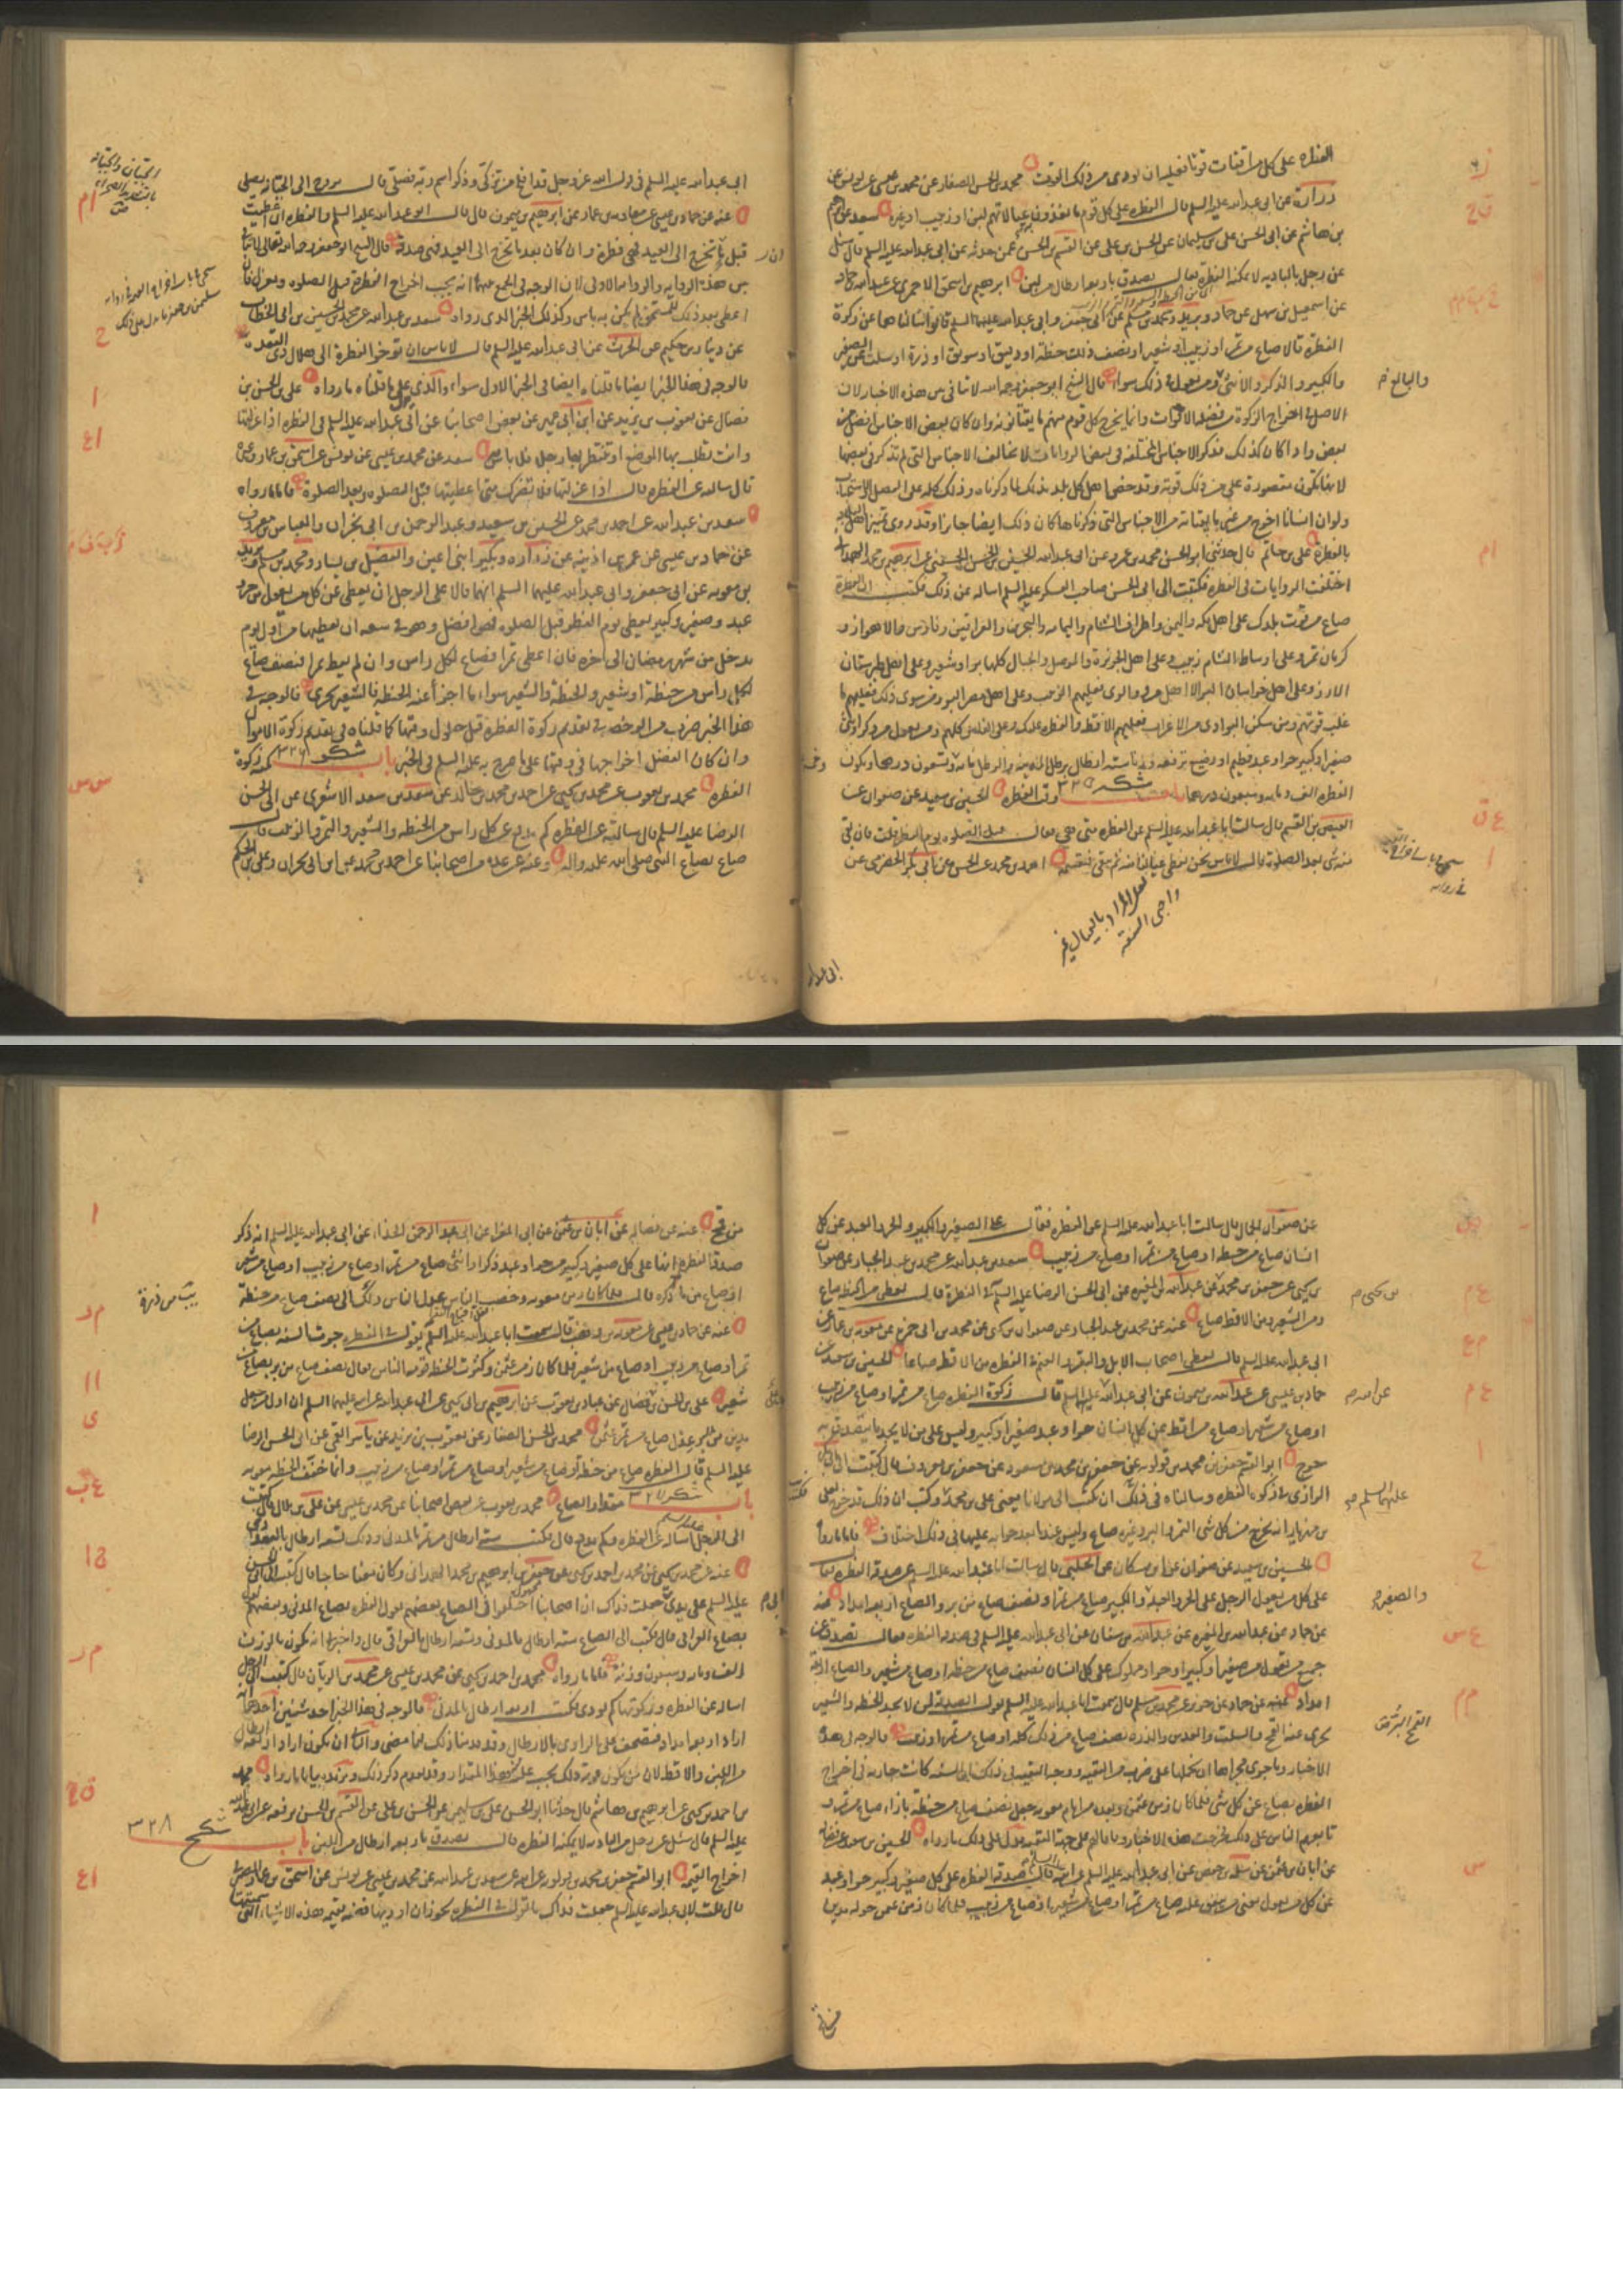 الفطرة على كل من اقتات قوتا فعليه ان يودى من ذلك القوت محمد بن الحسن الصفار عن محمد بن عيسى عن يونس عن
زرارة عن ابى عبد الله عليه السلم قال الفطرة على كل قوم ما يغذون عيالاتهم لبن او زبيب او غيره سعد عن ابرهيم
بن هاشم عن ابى الحسن على بن سليمان عن الحسن بن على عن القسم بن الحسن عمن حدثه عن ابى عبد الله عليه السلم قال سئل
عن رجل بالبادية لا يمكنه الفطرة قال يصدق باربعة ارطال من لبن ابرهيم بن اسحق الاحمرى عن عبد الله بن حماد
عن اسمعيل بن سهل عن حماد وبريد ومحمد بن مسلم عن ابى جعفر وابى عبد الله عليهما السلم قالوا سالناهما عن زكوة
الفطرة قالا صاع من تمر او زبيب او شعير او نصف ذلك حنطة او دقيق او سويق او ذرة او سلت عن الصغير
والكبير والذكر والانثى ومن تعول فى ذلك سواء قال الشيخ ابو جعفر رحمه الله لا تنافى بين هذه الاخبار لان
والبالغ
الاصل فى اخراج الزكوة من فضلة الاقوات وانما يخرج كل قوم منهم ما يقتاتونه وان كان بعض الاجناس افضل من
بعض واذا كان كذلك فذكر الاجناس المختلفة فى بعض الروايات لا تخالف الاجناس التى لم تذكر فى بعضها
لانها تكون مقصورة على من ذلك قوته وقد خص اهل كل بلد بذلك لما ذكرناه وذلك كله على الفضل والاستحباب
ولو ان انسانا اخرج من غير ما يقتاته من الاجناس التى ذكرناها كان ذلك ايضا جائزا وقد روى تمييز اهل البلاد
بالفطرة على بن حاتم قال حدثنى ابو الحسن محمد بن عمرو عن ابى عبد الله الحسين بن الحسن الحسينى عن ابرهيم بن محمد الهمدانى
اختلفت الروايات فى الفطرة فكتبت الى ابى الحسن صاحب العسكر عليه السلم اساله عن ذلك فكتب ان الفطرة
صاع من قوت بلدك على اهل مكه واليمن والطائف واطراف الشام واليمامه والبحرين والعراقين وفارس والاهواز و
كرمان تمر وعلى اوساط الشام زبيب وعلى اهل الجزيرة والموصل والجبال كلها بر او شعير وعلى اهل طبرستان
الارز وعلى اهل خراسان البر الا اهل مرو والرى فعليهم الزبيب وعلى اهل مصر البر ومن سوى ذلك فعليهم ما
غلب قوتهم ومن سكن البوادى من الاعراب فعليهم الاقط والفطرة عليك وعلى الناس كلهم ومن تعول من ذكر او انثى
صغيرا وكبيرا حر او عبد فطيم او رضيع تدفعه وزنا ستة ارطال برطل المدينه والرطل مائة وخمسة وتسعون درهما وتكون
الفطرة الف ومائه وسبعون درهما باب وقت الفطرة الحسين بن سعيد عن صفوان عن
العيص بن القسم قال سالت ابا عبد الله عليه السلم عن الفطرة متى هى فقال قبل الصلوه يوم الفطر قلت فان بقى
منه شى بعد الصلوة قال لا باس نحن نعطى عيالنا منه ثم يبقى فنقسمه احمد بن محمد عن الحسن عن ابى بكر الحضرمى عن
لعل المراد بالعيال غير
واجبى النفقة
ابى عبد الله
ابى عبد الله عليه السلم فى قول الله عز وجل قد افلح من تزكى وذكر اسم ربه فصلى قال يروح الى الجبانة يصلى
عنه عن حماد بن عيسى عن معاوية بن عمار عن ابرهيم بن ميمون قال قال ابو عبد الله عليه السلم والفطرة ان اعطيت
قبل ان تخرج الى العيد فهى فطرة وان كان بعد ما تخرج الى العيد فهى صدقة قال الشيخ ابو جعفر رحمه الله تعالى لا تنافى
بين هذه الروايه والروايه الاولى لان الوجه فى الجمع بينهما انه يجب اخراج الفطرة قبل الصلوه وبعزلها فان
اعطى بعد ذلك للمستحق لم يكن به باس وكذلك الخبر الذى رواه سعد بن عبد الله عن محمد بن الحسين بن ابى الخطاب
عن ذبيان بن حكيم عن الحرث عن ابى عبد الله عليه السلم قال لا باس ان توخر الفطرة الى هلال ذى القعده
فالوجه فى هذا الخبر ايضا ما قلناه ايضا فى الخبر الاول سواء والذى يدل على ما قلناه ما رواه على بن الحسن بن
فضال عن يعقوب بن يزيد عن ابن ابى عمير عن بعض اصحابنا عن ابى عبد الله عليه السلم فى الفطرة اذا عزلتها
وانت تطلب بها الموضع او تنتظر بها رجلا فلا باس به سعد عن محمد بن عيسى عن يونس عن اسحق بن عمار وغيره
قال سالته عن الفطرة قال اذا عزلتها فلا يضرك متى اعطيتها قبل الصلوه وبعد الصلوة فاما ما رواه
سعد بن عبد الله عن احمد بن محمد عن الحسين بن سعيد وعبد الرحمن بن ابى نجران والعباس بن معروف
عن حماد بن عيسى عن عمر بن اذينه عن زرارة وبكير ابنى اعين والفضيل بن يسار ومحمد بن مسلم وبريد
بن معويه عن ابى جعفر وابى عبد الله عليهما السلم انهما قالا على الرجل ان يعطى عن كل من يعول من حر و
عبد وصغير وكبير يعطى يوم الفطر قبل الصلوه فهو افضل وهو فى سعه ان يعطيها من اول يوم
يدخل من شهر رمضان الى اخره فان اعطى تمرا فصاع لكل راس وان لم يعط تمرا فنصف صاع
لكل راس من حنطة او شعير والحنطة والشعير سواء ما اجزأ عنه الحنطة فالشعير يجزى فالوجه فى
هذا الخبر ضرب من الرخصه فى تقديم زكوة الفطرة قبل حلول وقتها كما قلناه فى تقديم زكوة الاموال
وان كان الفضل اخراجها فى وقتها على ما صرح به عليه السلم فى الخبر باب كمية زكوة
الفطرة محمد بن يعقوب عن محمد بن يحيى عن احمد بن محمد بن خالد عن سعد بن سعد الاشعرى عن ابى الحسن
الرضا عليه السلم قال سالته عن الفطرة كم يدفع عن كل راس من الحنطه والشعير والتمر والزبيب قال
صاع بصاع النبى صلى الله عليه واله وعنه عن عدة من اصحابنا عن احمد بن محمد عن ابن ابى نجران وعلى بن الحكم
عن صفوان الجمال قال سالت ابا عبد الله عليه السلم عن الفطرة فقال على الصغير والكبير والحر والعبد عن كل
انسان صاع من حنطة او صاع من تمر او صاع من زبيب سعد بن عبد الله عن محمد بن عبد الجبار عن صفوان
بن يحيى عن جعفر بن محمد عن عبد الله بن المغيره عن ابى الحسن الرضا عليه السلم فى الفطرة قال يعطى من الحنطة صاع
ومن الشعير ومن الاقط صاع عنه عن محمد بن عبد الجبار عن صفوان بن يحيى عن محمد بن ابى حمزة عن معويه بن عمار عن
ابى عبد الله عليه السلم قال يعطى اصحاب الابل والبقر والغنم فى الفطرة من الاقط صاعا الحسين بن سعيد عن
حماد بن عيسى عن عبد الله بن ميمون عن ابى عبد الله عليه السلم قال زكوة الفطره صاع من تمر او صاع من زبيب
او صاع من شعير او صاع من اقط عن كل انسان حر او عبد صغير او كبير وليس على من لا يجد ما يتصدق به
حرج ابو القسم جعفر بن محمد بن قولويه عن جعفر بن محمد بن مسعود عن جعفر بن معروف قال كتبت الى ابى بكر
الرازى فى زكوة الفطره وسالناه فى ذلك ان يكتب الى مولانا يعنى على بن محمد فكتب ان ذلك قد خرج لعلى
بن مهزيار انه يخرج من كل شى التمر والبر وغيره صاع وليس عندنا بعد جوابه عليهما فى ذلك اختلاف فاما ما رواه
الحسين بن سعيد عن صفوان عن ابن مسكان عن الحلبى قال سالت ابا عبد الله عليه السلم عن صدقة الفطرة فقال
على كل من يعول الرجل على الحر والعبد والكبير صاع من تمر او نصف صاع من بر والصاع اربعة امداد عنه
والصغير
عن حماد عن عبد الله بن المغيره عن عبد الله بن سنان عن ابى عبد الله عليه السلم فى صدقة الفطره فقال تصدق عن
جميع من تعول من صغير او كبير او حر او مملوك على كل انسان نصف صاع من حنطة او صاع من شعير والصاع اربعة
امداد عنه عن حماد عن حريز عن محمد بن مسلم قال سمعت ابا عبد الله عليه السلم يقول الصدقة لمن لا يجد الحنطه والشعير
يجزى عنه القمح والسلت والعدس والذرة نصف صاع من ذلك كله او صاع من تمر او زبيب فالوجه فى هذه
الاخبار وما جرى مجراها ان نحملها على ضرب من التقيه ووجه التقيه فى ذلك ان السنه كانت جاريه فى اخراج
الفطره بصاع عن كل شى فلما كان زمن عثمن وبعده من ايام معويه جعل نصف صاع من حنطة بازاء صاع من تمر و
تابعهم الناس على ذلك فخرجت هذه الاخبار وفاقا لهم على جهة التقيه يدل على ذلك ما رواه الحسين بن سعيد عن فضالة
عن ابان بن عثمن عن سلمة بن حفص عن ابى عبد الله عليه السلم عن ابيه قال صدقة الفطره على كل صغير وكبير حر او عبد
عن كل من يعول يعنى من ينفق عليه صاع من تمر او صاع من شعير او صاع من زبيب فلما كان زمن عمر حوله مدين
من قمح
من قمح عنه عن فضاله عن ابان بن عثمن عن ابى المغرا عن ابى عبد الرحمن الحذاء عن ابى عبد الله عليه السلم انه ذكر
صدقة الفطره انها على كل صغير وكبير من حر او عبد ذكر او انثى صاع من تمر او صاع من زبيب او صاع من شعير
او صاع من ذره قال فلما كان زمن معويه وخصب الناس عدل الناس ذلك الى نصف صاع من حنطة
عنه عن حماد بن عيسى عن معويه بن وهب قال سمعت ابا عبد الله عليه السلم يقول فى الفطره جرت السنة بصاع من
تمر او صاع من زبيب او صاع من شعير فلما كان زمن عثمن وكثرت الحنطه قومه الناس فقال نصف صاع من بر بصاع من
شعير على بن الحسن بن فضال عن عباد بن يعقوب عن ابرهيم بن ابى يحيى عن ابى عبد الله عن ابيه عليهما السلم ان اول من جعل
مدين من البر عدل صاع من تمر عثمن محمد بن الحسن الصفار عن يعقوب بن يزيد عن ياسر القمى عن ابى الحسن الرضا
عليه السلم قال الفطره صاع من حنطة او صاع من شعير او صاع من تمر او صاع من زبيب وانما خفف الحنطه معويه
باب مقدار الصاع محمد بن يعقوب عن بعض اصحابنا عن محمد بن عيسى عن على بن بلال قال كتبت
الى الرجل اساله عن الفطره وكم يدفع قال فكتب ستة ارطال من تمر بالمدنى وذلك تسعة ارطال بالبغدادى
عنه عن محمد بن يحيى عن محمد بن احمد بن يحيى عن جعفر بن ابرهيم بن محمد الهمدانى وكان معنا حاجا قال كتبت الى ابى الحسن
عليه السلم على يدى ابى جعلت فداك ان اصحابنا اختلفوا فى الصاع بعضهم يقول الفطره بصاع المدنى وبعضهم يقول
بصاع العراقى قال فكتب الى الصاع ستة ارطال بالمدنى وتسعة ارطال بالعراقى قال واخبرنى انه يكون بالوزن
الفا ومائه وسبعون وزنة فاما ما رواه محمد بن احمد بن يحيى عن محمد بن عيسى عن محمد بن الريان قال كتبت الى الرجل
اساله عن الفطره وزكوتها كم تودى فكتب اربعة ارطال بالمدنى فالوجه فى هذا الخبر احد شيئين احدهما انه
اراد اربعة امداد فتصحف على الراوى بالارطال وقد قدمنا ذلك فيما مضى والثانى ان يكون اراد اربعة ارطال
من اللبن والاقط لان من كان قوته ذلك يجب عليه هذا المقدار وقد تقدم ذكر ذلك ويزيده بيانا ما رواه محمد
بن احمد بن يحيى عن ابرهيم بن هاشم قال حدثنا ابو الحسن على بن سليمن عن الحسن بن على عن القسم بن الحسن رفعه عن ابى عبد الله
عليه السلم قال سئل عن رجل من الباديه لا يمكنه الفطره قال تصدق باربعة ارطال من اللبن باب
اخراج القيمة ابو القسم جعفر بن محمد بن قولويه عن ابيه عن سعد بن عبد الله عن محمد بن عيسى عن يونس عن اسحق بن عمار الصيرفى
قال قلت لابى عبد الله عليه السلم جعلت فداك ما تقول فى الفطره يجوز ان اوديها فضة بقيمة هذه الاشياء التى سميتها